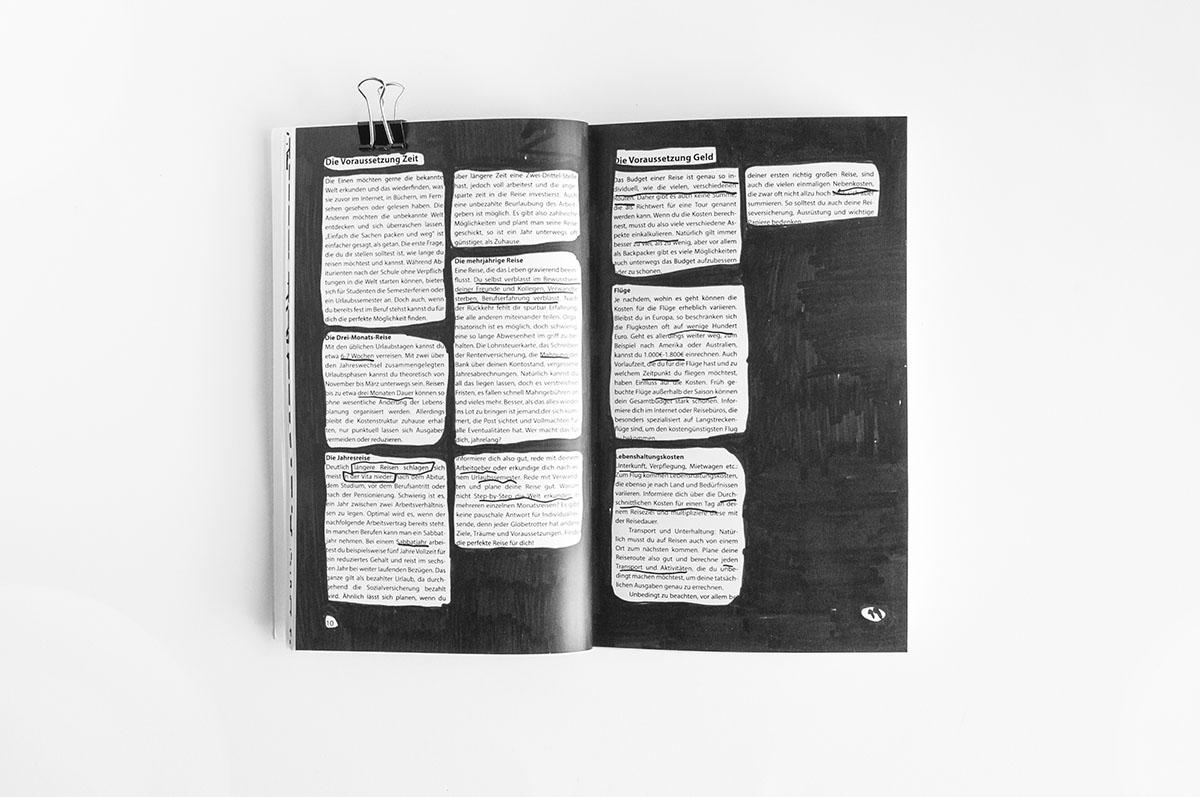 Die Voraussetzung Zeit
Die Einen möchten gerne die bekannte
Welt erkunden und das wiederfinden, was
sie zuvor im Internet, in Büchern, im Fern-
sehen gesehen oder gelesen haben. Die
Anderen möchten die unbekannte Welt
entdecken und sich überraschen lassen.
„Einfach die Sachen packen und weg" ist
einfacher gesagt, als getan. Die erste Frage,
die du dir stellen solltest ist, wie lange du
reisen möchtest und kannst. Während Ab-
iturienten nach der Schule ohne Verpflich-
tungen in die Welt starten können, bieten
sich für Studenten die Semesterferien oder
ein Urlaubssemester an. Doch auch, wenn
du bereits fest im Beruf stehst kannst du für
dich die perfekte Möglichkeit finden.
Die Drei-Monats-Reise
Mit den üblichen Urlaubstagen kannst du
etwa 6-7 Wochen verreisen. Mit zwei über
den Jahreswechsel zusammengelegten
Urlaubsphasen kannst du theoretisch von
November bis März unterwegs sein. Reisen
bis zu etwa drei Monaten Dauer können so
ohne wesentliche Änderung der Lebens-
planung organisiert werden. Allerdings
bleibt die Kostenstruktur zuhause erhal-
ten, nur punktuell lassen sich Ausgaben
vermeiden oder reduzieren.
Die Jahresreise
Deutlich längere Reisen schlagen sich
meist in der Vita nieder: nach dem Abitur,
dem Studium, vor dem Berufsantritt oder
nach der Pensionierung. Schwierig ist es,
ein Jahr zwischen zwei Arbeitsverhältnis-
sen zu legen. Optimal wird es, wenn der
nachfolgende Arbeitsvertrag bereits steht.
In manchen Berufen kann man ein Sabbat-
jahr nehmen. Bei einem Sabbatjahr arbei-
test du beispielsweise fünf Jahre Vollzeit für
ein reduziertes Gehalt und reist im sechs-
ten Jahr bei weiter laufenden Bezügen. Das
ganze gilt als bezahlter Urlaub, da durch-
gehend die Sozialversicherung bezahlt
wird. Ähnlich lässt sich planen, wenn du
10
über längere Zeit eine Zwei-Drittel-Stelle
hast, jedoch voll arbeitest und die ange-
sparte Zeit in die Reise investierst. Auch
eine unbezahlte Beurlaubung des Arbeit-
gebers ist möglich. Es gibt also zahlreiche
Möglichkeiten und plant man seine Reise
geschickt, so ist ein Jahr unterwegs oft
günstiger, als Zuhause.
Die mehrjährige Reise
Eine Reise, die das Leben gravierend beein-
flusst. Du selbst verblasst im Bewusstsein
deiner Freunde und Kollegen, Verwandte
sterben, Berufserfahrung verblasst. Nach
der Rückkehr fehlt dir spürbar Erfahrung,
die alle anderen miteinander teilen. Orga-
nisatorisch ist es möglich, doch schwierig
eine so lange Abwesenheit im griff zu be-
halten. Die Lohnsteuerkarte, das Schreiben
der Rentenversicherung, die Mahnung der
Bank über deinen Kontostand, vergessene
Jahresabrechnungen. Natürlich kannst du
all das liegen lassen, doch es verstreichen
Fristen, es fallen schnell Mahngebühren an
und vieles mehr. Besser, als das alles wieder
ins Lot zu bringen ist jemand der sich küm-
mert, die Post sichtet und Vollmachten für
alle Eventualitäten hat. Wer macht das für
dich, jahrelang?
Informiere dich also gut, rede mit deinem
Arbeitgeber oder erkundige dich nach ei-
nem Urlaubssemester. Rede mit Verwand-
ten und plane deine Reise gut. Warum
nicht Step-by-Step die Welt erkunden in
mehreren einzelnen Monatsreisen? Es gibt
keine pauschale Antwort für Individualrei-
sende, denn jeder Globetrotter hat andere
Ziele, Träume und Voraussetzungen. Finde
die perfekte Reise für dich!
Die Voraussetzung Geld
Das Budget einer Reise ist genau so in-
dividuell, wie die vielen, verschiedenen
Routen. Daher gibt es auch keine Summe,
die als Richtwert für eine Tour genannt
werden kann. Wenn du die Kosten berech-
nest, musst du also viele verschiedene As-
pekte einkalkulieren. Natürlich gilt immer
besser zu viel als zu wenig, aber vor allem
als Backpacker gibt es viele Möglichkeiten
auch unterwegs das Budget aufzubessern
oder zu schonen.
Flüge
Je nachdem, wohin es geht können die
Kosten für die Flüge erheblich variieren.
Bleibst du in Europa, so beschränken sich
die Flugkosten oft auf wenige Hundert
Euro. Geht es allerdings weiter weg, zum
Beispiel nach Amerika oder Australien,
kannst du 1.000€-1.800€ einrechnen. Auch
Vorlaufzeit, die du für die Flüge hast und zu
welchem Zeitpunkt du fliegen möchtest,
haben Einfluss auf die Kosten. Früh ge-
buchte Flüge außerhalb der Saison können
dein Gesamtbudget stark schonen. Infor-
miere dich im Internet oder Reisebüro, die
besonders spezialisiert auf Langstrecken-
flüge sind, um den kostengünstigsten Flug
zu bekommen.
Lebenshaltungskosten
Unterkunft, Verpflegung, Mietwagen etc.:
Zum Flug kommen Lebenshaltungskosten,
die ebenso je nach Land und Bedürfnissen
variieren. Informiere dich über die Durch-
schnittlichen Kosten für einen Tag an dei-
nem Reiseziel und multipliziere diese mit
der Reisedauer.
Transport und Unterhaltung: Natür-
lich musst du auf Reisen auch von einem
Ort zum nächsten kommen. Plane deine
Reiseroute also gut und berechne jeden
Transport und Aktivitäten, die du unbe-
dingt machen möchtest, um deine tatsäch-
lichen Ausgaben genau zu errechnen.
Unbedingt zu beachten, vor allem bei
deiner ersten richtig großen Reise, sind
auch die vielen einmaligen Nebenkosten,
die zwar oft nicht allzu hoch sind, sich aber
summieren. So solltest du auch deine Rei-
seversicherung, Ausrüstung und wichtige
Papiere bedenken.
11